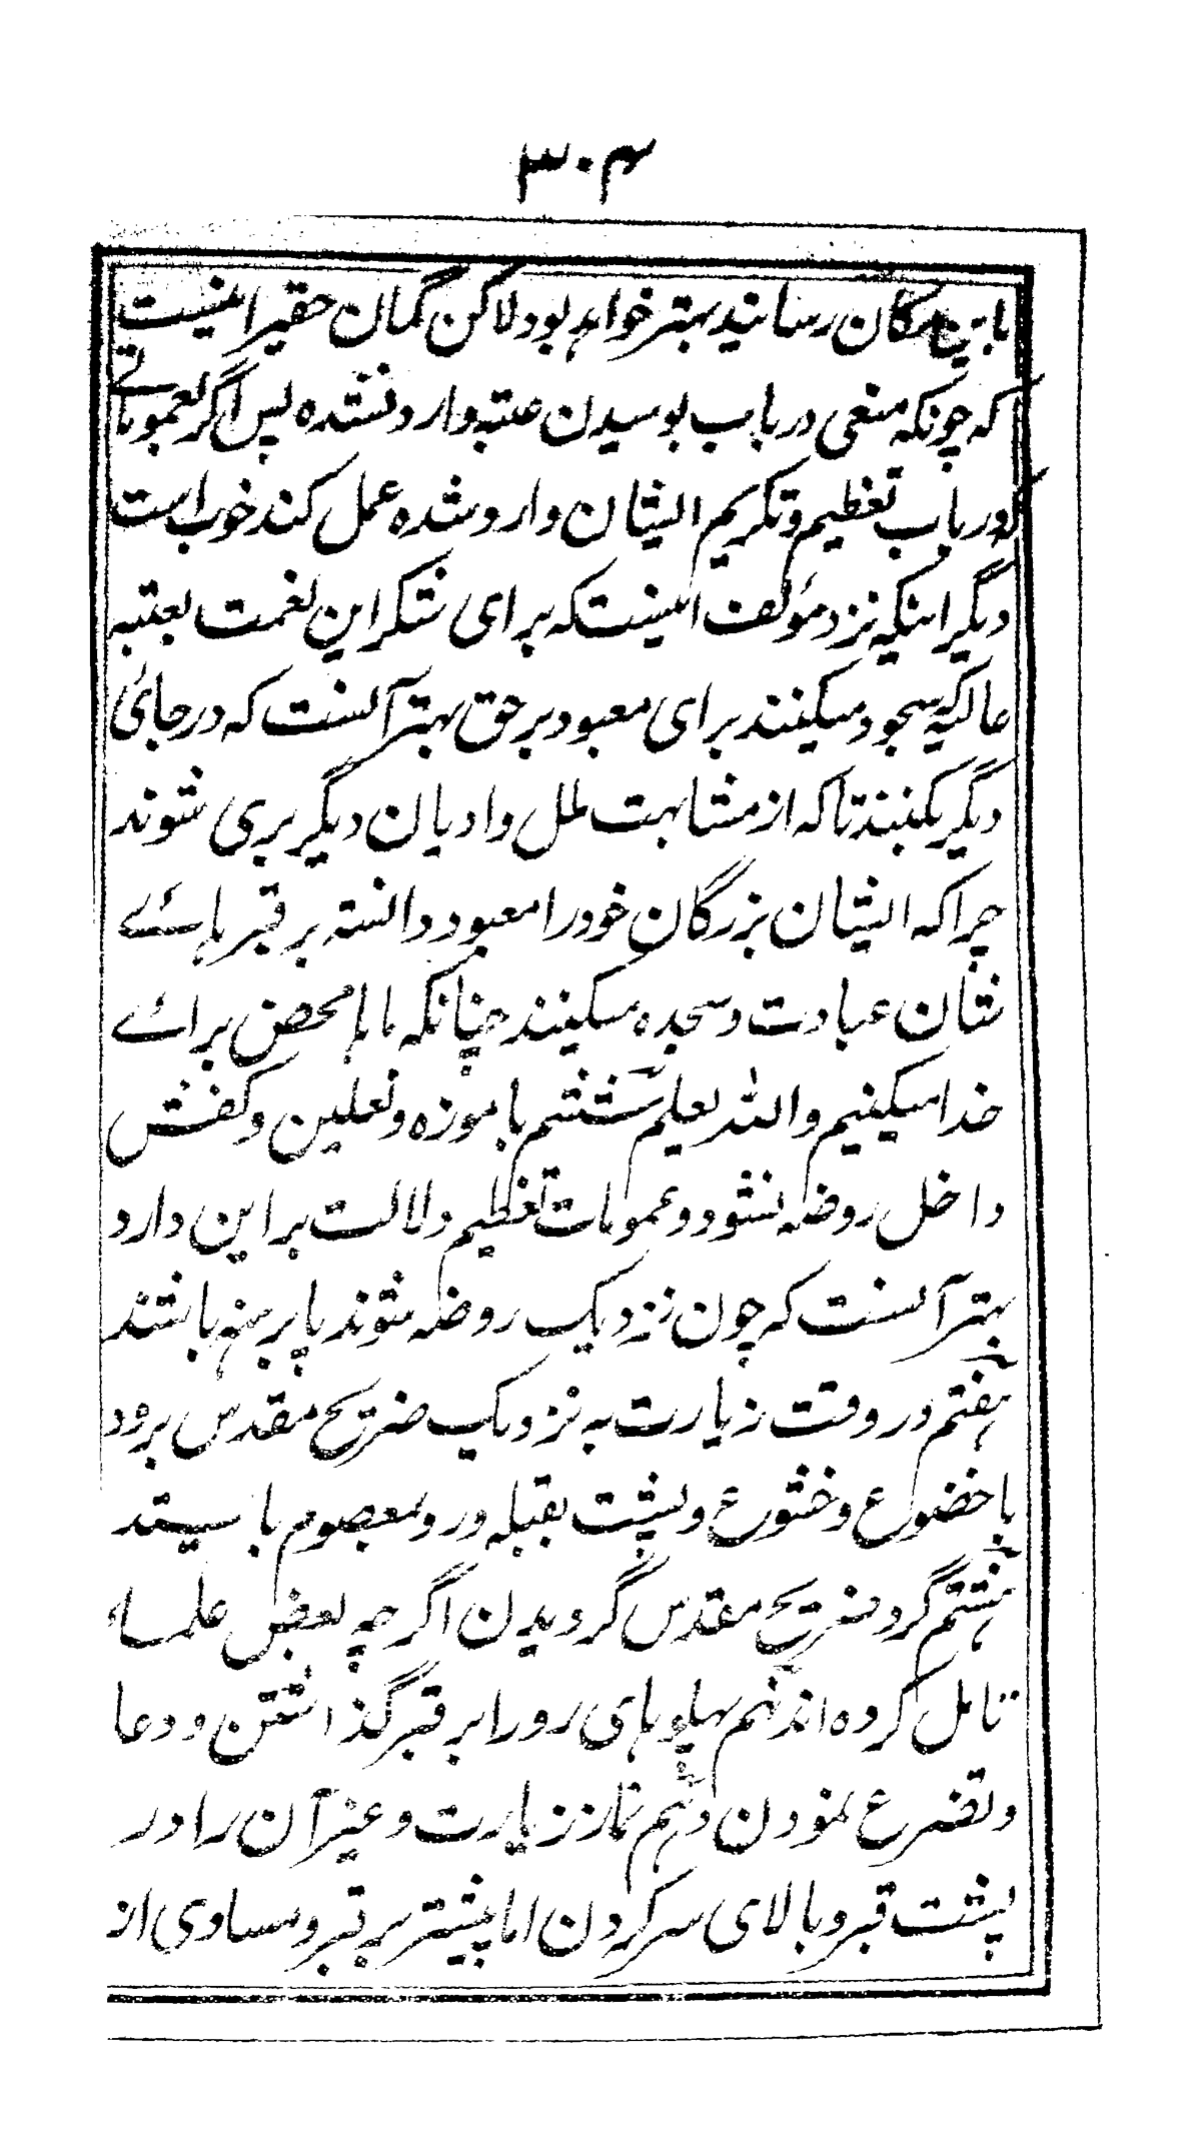 ۳۰۴
باین مکان رسانید بهتر خواهد بود لاکن گمان حقیر اینست
که چونکه منعی در باب بوسیدن عتبه وارد نشده پس اگر بعموماتے
که در باب تعظیم و تکریم ایشان وارد شده عمل کند خوب است
دیگر اینکه نزد مؤلف اینست که برای شکر این نعمت بعتبه
عالیه سجود میکنند برای معبود برحق بهتر آنست که در جائی
دیگر بکنند تا که از مشابهت ملل و ادیان دیگر بری شوند
چرا که ایشان بزرگان خود را معبود دانسته بر قبرهائے
شان عبادت و سجده میکنند چنانکه ماها محض برائے
خدا میکنیم والله یعلم ششم با موزه و نعلین و کفش
داخل روضه نشود و عمومات تعظیم دلالت بر این دارد
بهتر آنست که چون نزدیک روضه شوند پا برهنه باشند
هفتم در وقت زیارت به نزدیک ضریح مقدس برود
با خضوع و خشوع و پشت بقبله و رو بمعصوم بایستد
هشتم گرد ضریح مقدس گردیدن اگرچه بعض علماء
تامل کرده اند نهم پهلوهای رو را بر قبر گذاشتن و دعا
و تضرع نمودن دهم نماز زیارت و غیر آن را در
پشت قبر و بالای سر کردن اما پیشتر بر قبر و مساوی از